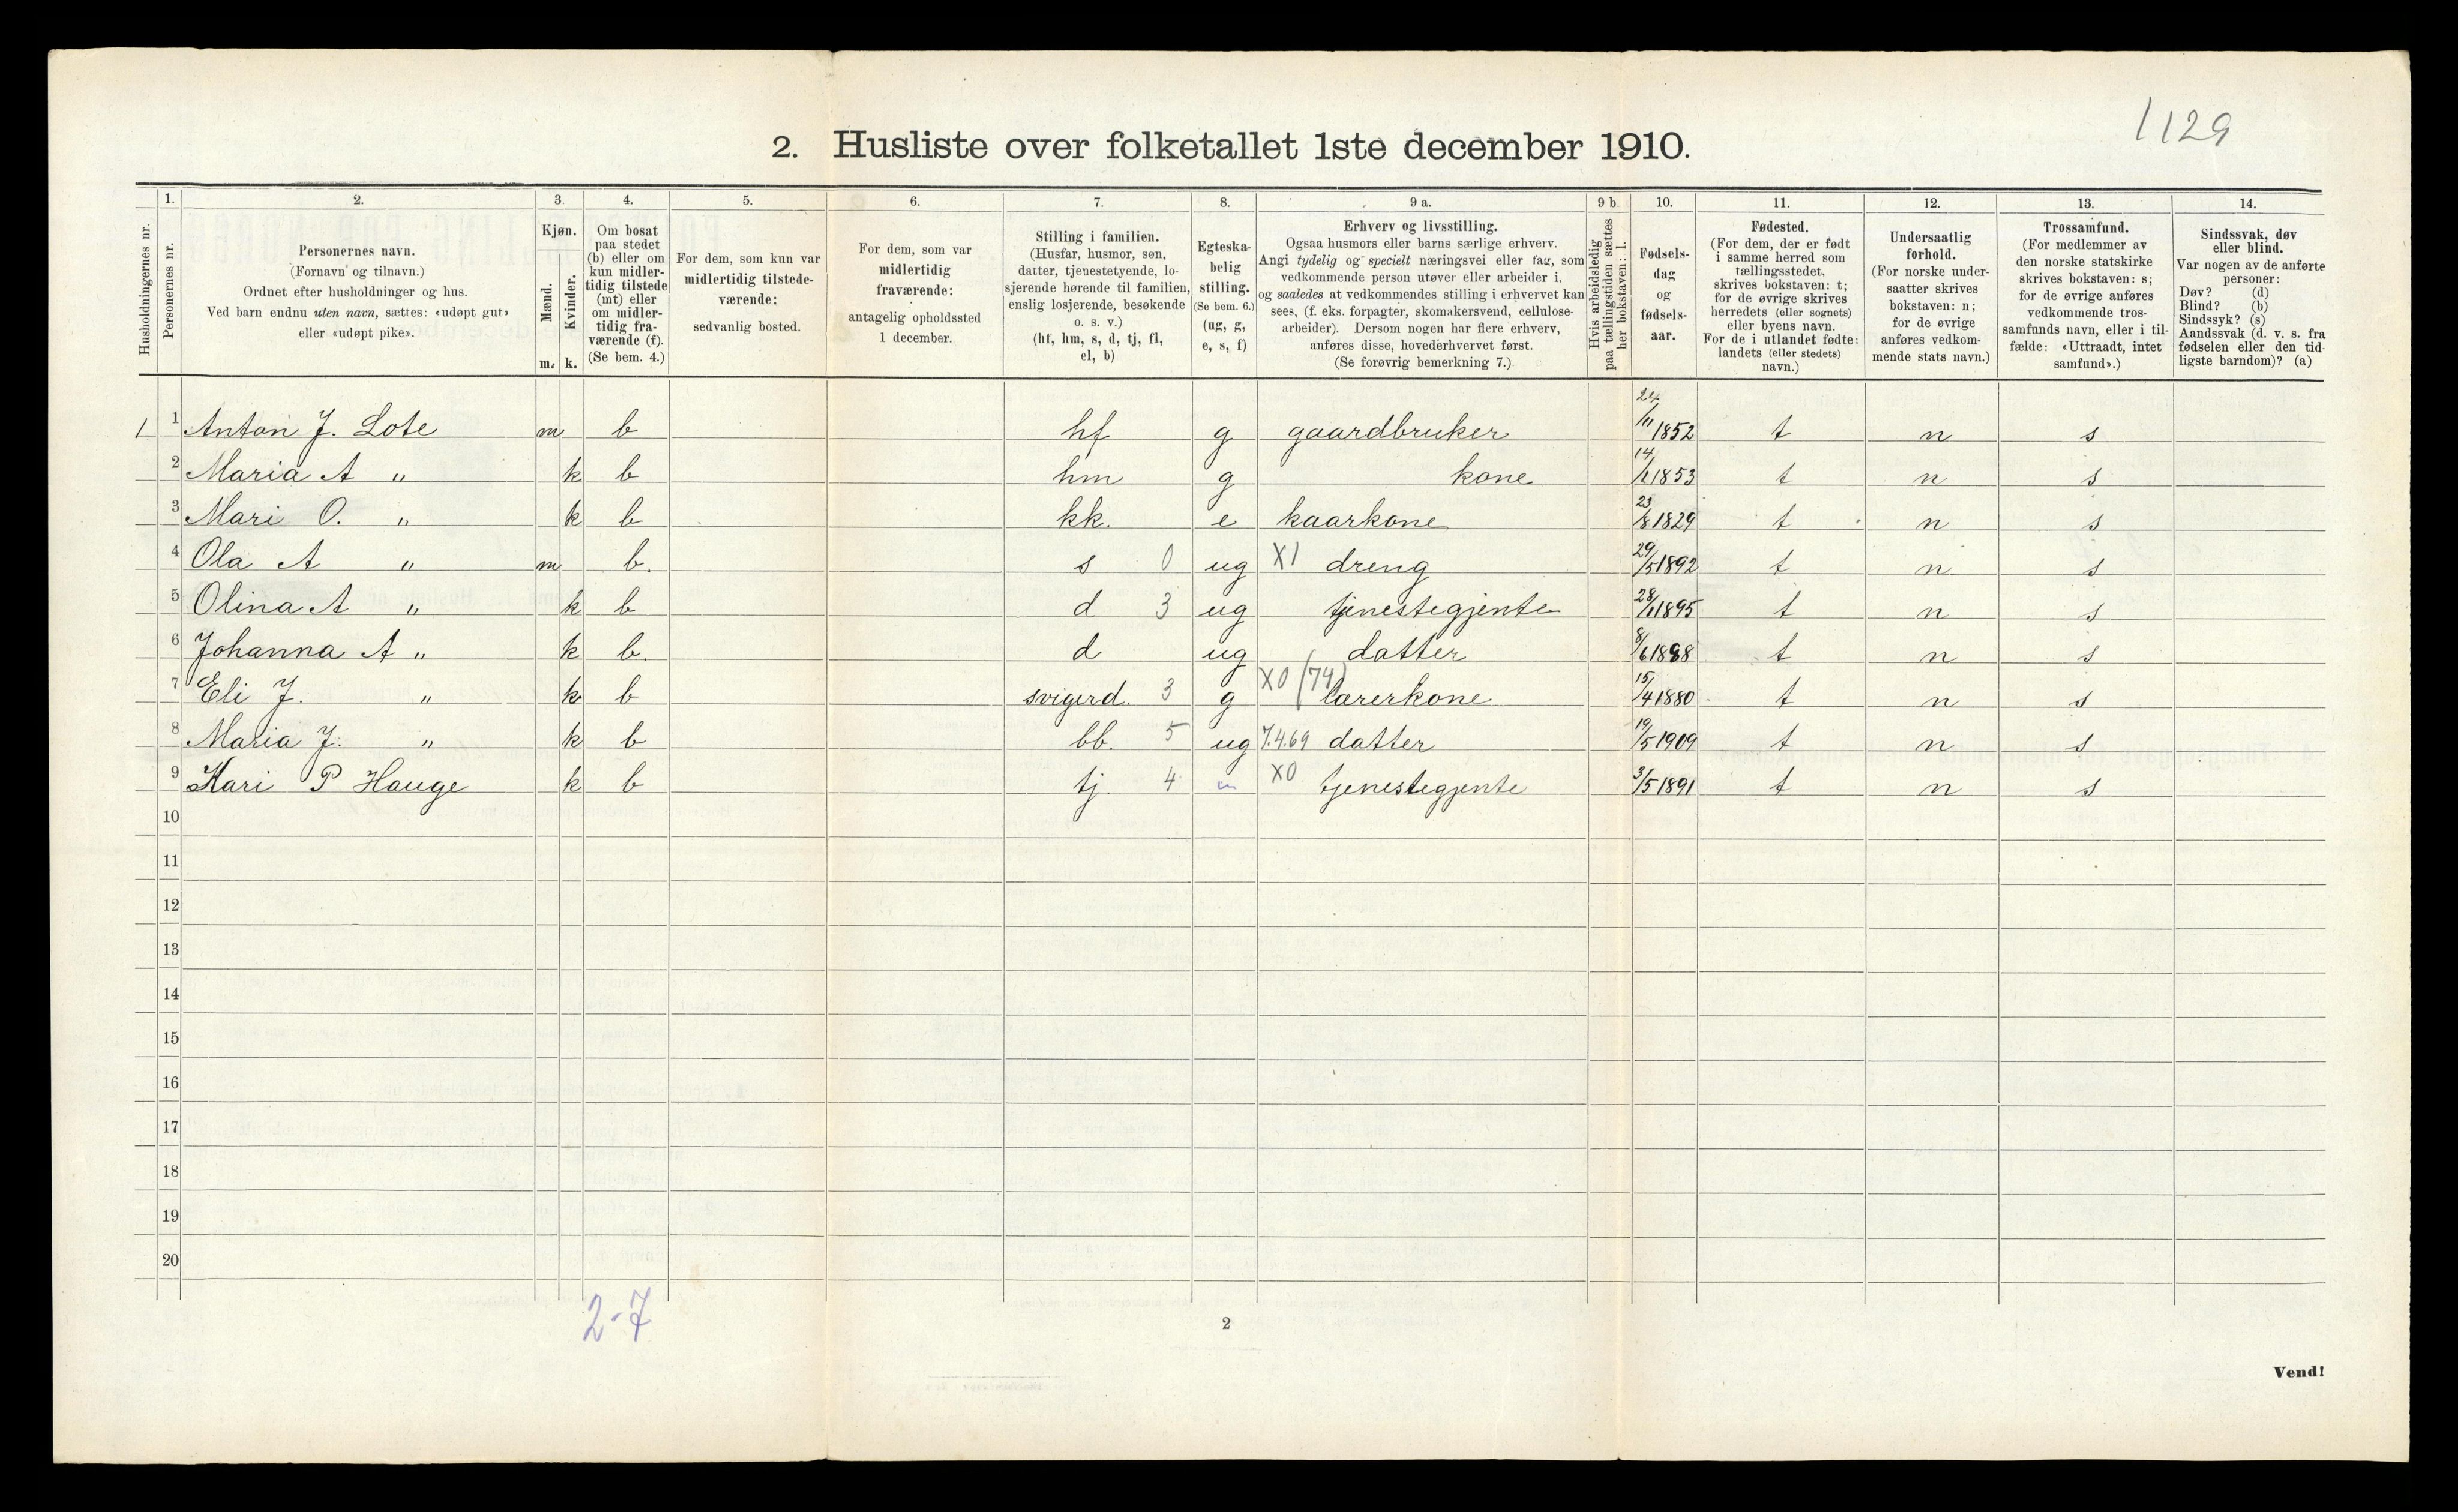 1129
2. Husliste over folketallet 1ste december 1910.
Husholdningernes nr.
1.
Personernes nr.
2.
Personernes navn.
(Fornavn og tilnavn.)
Ordnet efter husholdninger og hus.
Ved barn endnu uten navn, sættes: «udøpt gut»
eller «udøpt pike».
3.
Kjøn.
Mænd.
Kvinder.
m. k.
4.
Om bosat
paa stedet
(b) eller om
kun midler-
tidig tilstede
(mt) eller
om midler-
tidig fra-
værende (f).
(Se bem. 4.)
5.
For dem, som kun var
midlertidig tilstede-
værende:
sedvanlig bosted.
6.
For dem, som var
midlertidig
fraværende:
antagelig opholdssted
1 december.
7.
Stilling i familien.
(Husfar, husmor, søn,
datter, tjenestetyende, lo-
sjerende hørende til familien,
enslig losjerende, besøkende
o. s. v.)
(hf, hm, s, d, tj, fl,
el, b)
8.
Egteska-
belig
stilling.
(Se bem. 6.)
(ug, g,
e, s, f)
9 a.
Erhverv og livsstilling.
Ogsaa husmors eller barns særlige erhverv.
Angi tydelig og specielt næringsvei eller fag, som
vedkommende person utøver eller arbeider i,
og saaledes at vedkommendes stilling i erhvervet kan
sees, (f. eks. forpagter, skomakersvend, cellulose-
arbeider). Dersom nogen har flere erhverv,
anføres disse, hovederhvervet først.
(Se forøvrig bemerkning 7.)
9 b
Hvis arbeidsledig
paa tællingstiden sættes
her bokstaven: l.
10.
Fødsels-
dag
og
fødsels-
aar.
11.
Fødested.
(For dem, der er født
i samme herred som
tællingsstedet,
skrives bokstaven: t;
for de øvrige skrives
herredets (eller sognets)
eller byens navn.
For de i utlandet fødte:
landets (eller stedets)
navn.)
12.
Undersaatlig
forhold.
(For norske under-
saatter skrives
bokstaven: n;
for de øvrige
anføres vedkom-
mende stats navn.)
13.
Trossamfund.
(For medlemmer av
den norske statskirke
skrives bokstaven: s;
for de øvrige anføres
vedkommende tros-
samfunds navn, eller i til-
fælde: «Uttraadt, intet
samfund».)
14.
Sindssvak, døv
eller blind.
Var nogen av de anførte
personer:
Døv? (d)
Blind? (b)
Sindssyk? (s)
Aandssvak (d. v. s. fra
fødselen eller den tid-
ligste barndom)? (a)
1 1 Anton J. Lote m b hf g gaardbruker 24/11 1852 t n s
2 Maria A " k b hm g kone 1853 t n s
3 Mari O. " k b kk. e kaarkone 23/8 1829 t n s
4 Ola A " m b. s 0 ug X1 dreng 29/5 1892 t n s
5 Olina A " k b d 3 ug tjenestegjente 1895 t n s
6 Johanna A " k b. d ug datter 8/6 1898 t n s
7 Eli J. " k b svigerd. 3 g X0 (74) lærerkone 15/4 1880 t n s
8 Maria J. " k b bb. 5 ug 7.4.69 datter 19/5 1909 t n s
9 Kari P Hauge k b tj. 4 X0 tjenestegjente 3/5 1891 t n s
10
11
12
13
14
15
16
17
18
19
20
2-7
2
Vend!